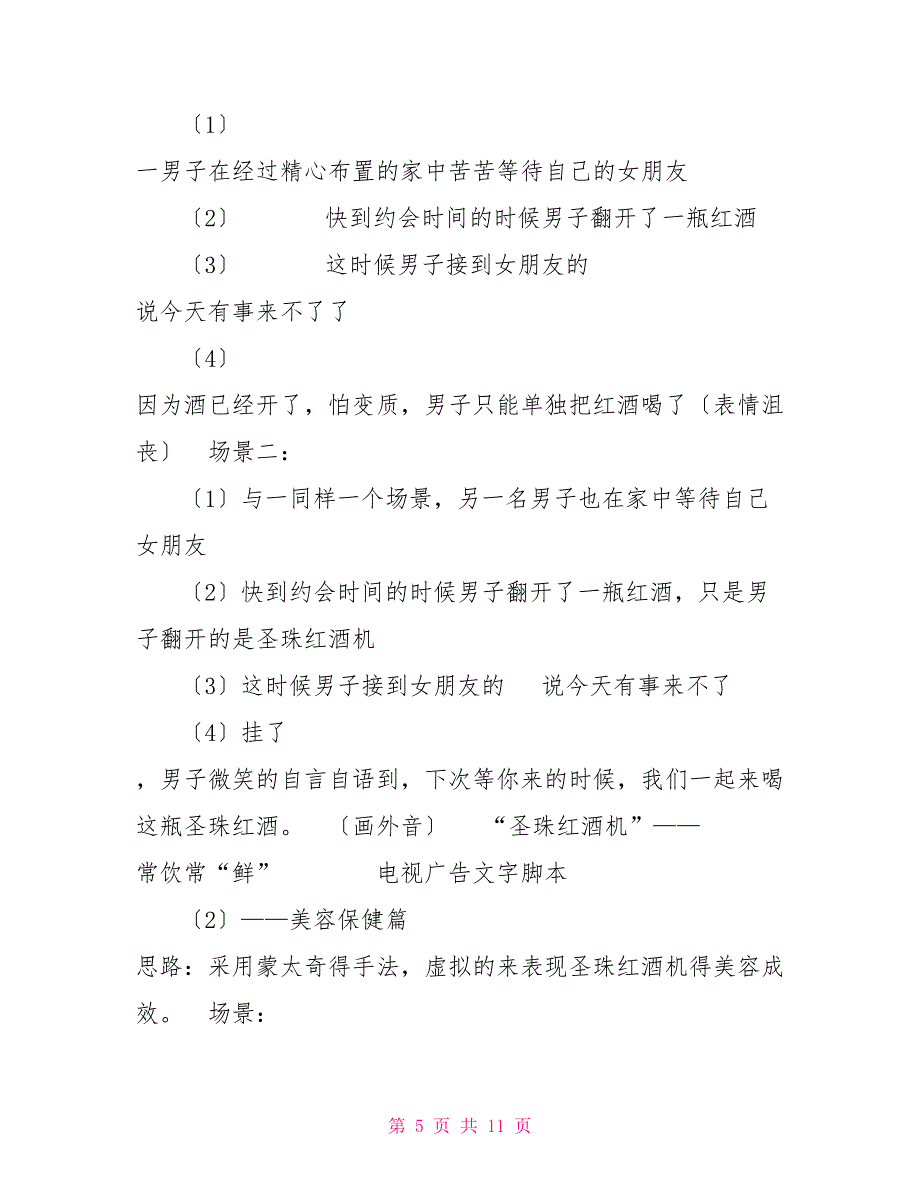 〔1〕
一男子在经过精心布置的家中苦苦等待自己的女朋友
〔2〕 快到约会时间的时候男子翻开了一瓶红酒
〔3〕 这时候男子接到女朋友的
说今天有事来不了了
〔4〕
因为酒已经开了，怕变质，男子只能单独把红酒喝了〔表情沮
丧〕 场景二：
〔1〕与一同样一个场景，另一名男子也在家中等待自己
女朋友
〔2〕快到约会时间的时候男子翻开了一瓶红酒，只是男
子翻开的是圣珠红酒机
〔3〕这时候男子接到女朋友的 说今天有事来不了
〔4〕挂了
，男子微笑的自言自语到，下次等你来的时候，我们一起来喝
这瓶圣珠红酒。 〔画外音〕 “圣珠红酒机”——
常饮常“鲜” 电视广告文字脚本
〔2〕——美容保健篇
思路：采用蒙太奇得手法，虚拟的来表现圣珠红酒机得美容成
效。 场景：
第 5 页 共 11 页